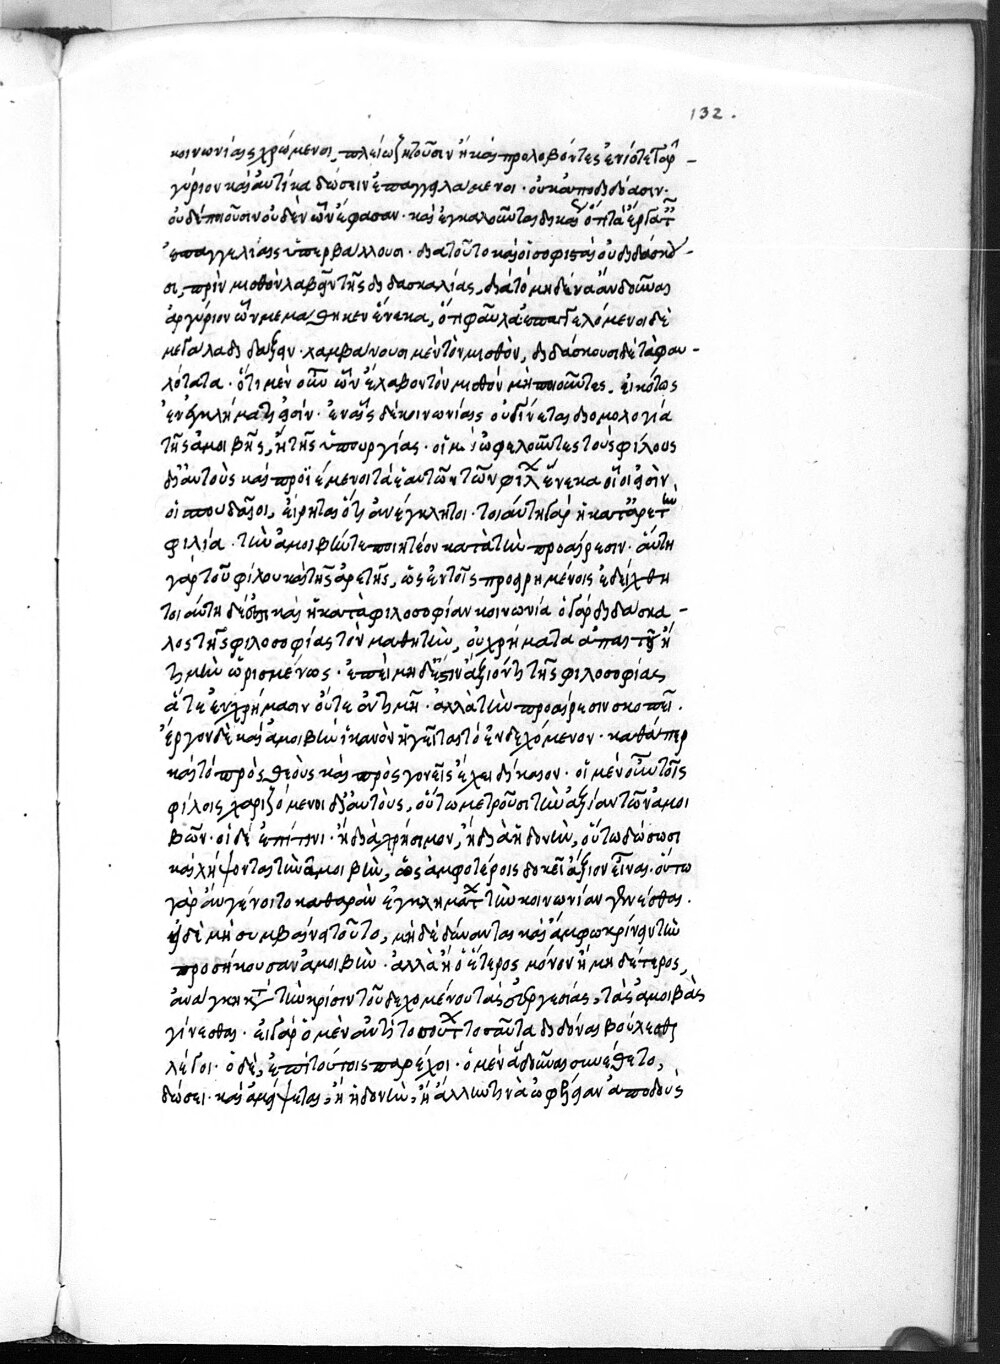 132.
κοινωνίαις χρώμενοι, πλείω ζητοῦσιν ἢ καὶ προλαβόντες ἐνίοτε τἀρ-
γύριον καὶ αὐτίκα δώσειν ἐπαγγειλάμενοι. οὐκ ἀποδιδόασιν.
οὐδὲ ποιοῦσιν οὐδὲν ὧν ἔφασαν. καὶ ἐγκαλοῦνται δικαίως ὅτι τὰ ἔργα ταῖς
ἐπαγγελίαις ὑπερβάλλουσι. διὰ τοῦτο καὶ οἱ σοφισταὶ οὐ διδάσκου-
σι, πρὶν μισθὸν λαβεῖν τῆς διδασκαλίας, διὰ τὸ μηδένα ἂν δοῦναι
ἀργύριον ὧν μεμάθηκεν ἕνεκα, ὅτι φαῦλα ἐπαγγελόμενοι δὲ
μεγάλα διδάξειν. λαμβάνουσι μὲν τὸν μισθόν, διδάσκουσι δὲ τὰ φαυ-
λότατα. ὅτι μὲν οὖν ὧν ἔλαβον τὸν μισθὸν μὴ ποιοῦντες. εἰκότως
ἐν ἐγκλήμασιν εἰσίν. ἐν αἷς δὲ κοινωνίαις οὐ γίνεται διομολογία
τῆς ἀμοιβῆς, ἢ τῆς ὑπουργίας. οἱ μὲν ὠφελοῦντες τοὺς φίλους
δι' αὐτοὺς καὶ προϊέμενοι τὰ ἑαυτῶν τῶν φίλων ἕνεκα οἷοί εἰσιν
οἱ σπουδαῖοι, εἴρηται ὅτι ἀνέγκλητοι. τοιαύτη γὰρ ἡ κατ' ἀρετὴν
φιλία. τὴν ἀμοιβήν τε ποιητέον κατὰ τὴν προαίρεσιν. αὕτη
γὰρ τοῦ φίλου καὶ τῆς ἀρετῆς, ὡς ἐν τοῖς προειρημένοις ἐδείχθη
τοιαύτη δέ ἐστι καὶ ἡ κατὰ φιλοσοφίαν κοινωνία ὁ γὰρ διδάσκα-
λος τῆς φιλοσοφίας τὸν μαθητήν, οὐ χρήματα ἀπαιτεῖ ἢ
τιμὴν ὡρισμένως. ἐπεὶ μηδέ ἐστιν ἄξιόν τι τῆς φιλοσοφίας
οὔτε ἐν χρήμασιν οὔτε ἐν τιμῇ. ἀλλὰ τὴν προαίρεσιν σκοπεῖ.
ἔργον δὲ καὶ ἀμοιβὴν ἱκανὸν ἡγεῖται τὸ ἐνδεχόμενον. καθάπερ
καὶ τὸ πρὸς θεοὺς καὶ πρὸς γονεῖς ἔχει δίκαιον. οἱ μὲν οὖν τοῖς
φίλοις χαριζόμενοι δι' αὐτούς, οὕτω μετροῦσι τὴν ἀξίαν τῶν ἀμοι
βῶν. οἱ δὲ ἐπί τινι. ἢ διὰ χρήσιμον, ἢ διὰ ἡδονήν, οὕτω δώσωσι
καὶ λήψονται τὴν ἀμοιβήν, ὡς ἀμφοτέροις δοκεῖ ἄξιον εἶναι. οὕτω
γὰρ ἂν γένοιτο καθαρὰν ἐγκλημάτων τὴν κοινωνίαν γενέσθαι.
εἰ δὲ μὴ συμβαίνει τοῦτο, μηδὲ δύνανται καὶ ἄμφω κρίνειν τὴν
προσήκουσαν ἀμοιβήν. ἀλλὰ ἢ ὁ ἕτερος μόνον ἢ μηδέτερος,
ἀνάγκη κατὰ τὴν κρίσιν τοῦ δεχομένου τὰς εὐεργεσίας, τὰς ἀμοιβὰς
γίνεσθαι. εἰ γὰρ ὁ μὲν ἀντὶ τοσούτων τοσαῦτα διδόναι βούλεσθαι
λέγοι. ὁ δὲ, ἐπὶ τούτοις παρέχοι. ὁ μὲν ἃ δοῦναι συνέθετο,
δώσει. καὶ ἀμείψεται, ἢ ἡδονήν, ἢ ἄλλην τινὰ ὠφέλειαν ἀποδοὺς